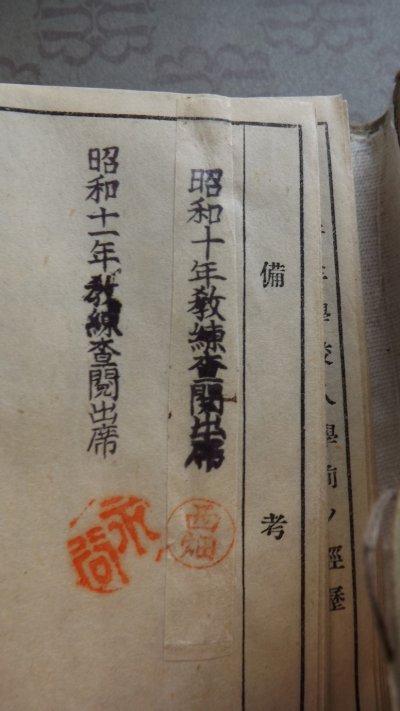 學校入學前ノ經歷
備考
昭和十年教練査閲出席
西畑
昭和十一年教練査閲出席